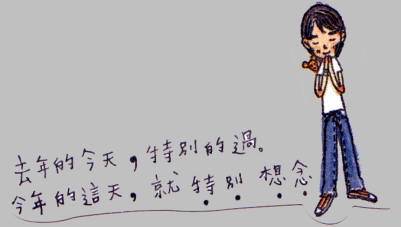 去年的今天，特別的過。
今年的這天，就特別想念